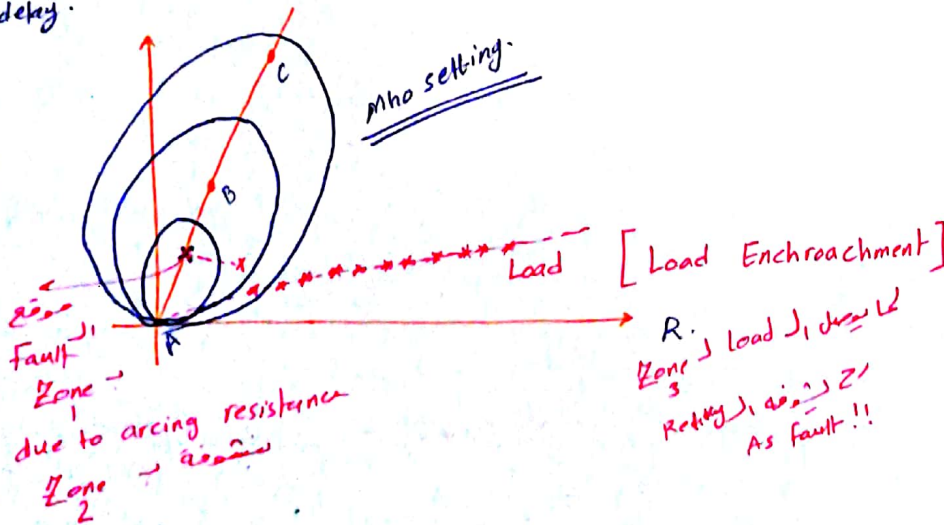 delay.
C
Mho setting.
B
Load
[Load Enchroachment]
A
R.
موقع
الـ
Fault
Zone 1
due to arcing resistance
Zone 2
لما يوصل الـ Load لـ
Zone 3
As fault!!